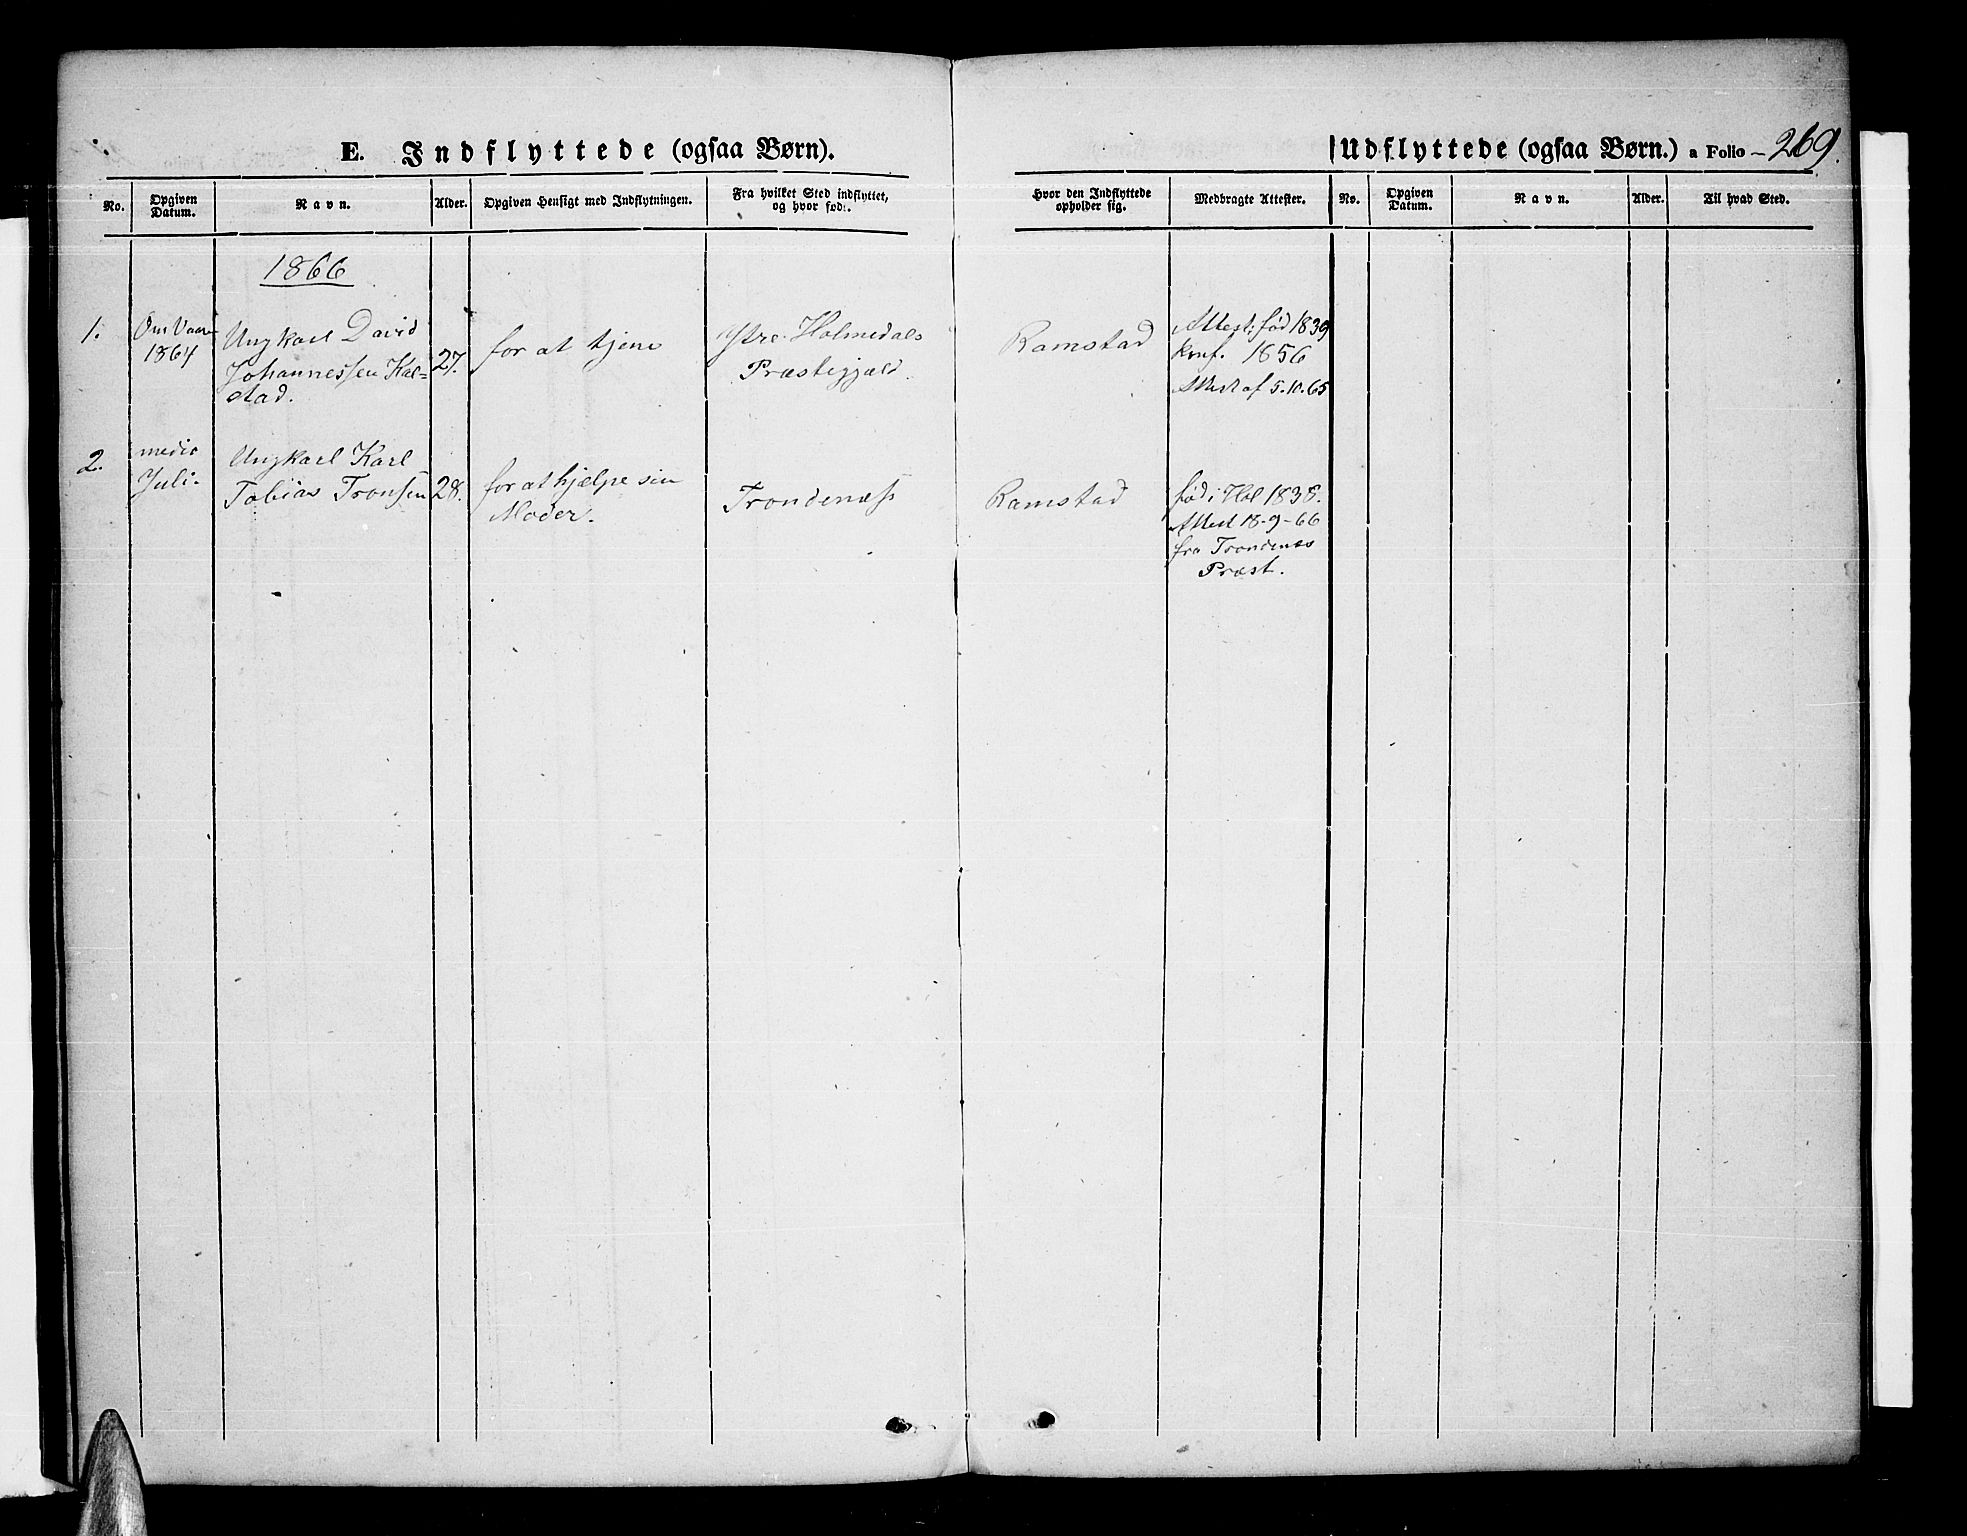 E. Indflyttede (ogsaa Børn).
No.
Opgiven Datum.
Navn.
Alder.
Opgiven Hensigt med Indflytningen.
Fra hvilket Sted indflyttet, og hvor fød:.
1866
1.
Om Vaaren
1864
Ungkarl David
Johannessen Kal=
stad.
27.
for at tjene
Ytre Holmedals
Præstegjæld
2.
medio
Juli.
Ungkarl Karl
Tobias Tronsen
28.
for at hjælpe sin
Moder.
Trondenæss
Udflyttede (ogsaa Børn.) a Folio 269.
Hvor den Indflyttede opholder sig.
Medbragte Attester.
No.
Opgiven Datum.
Navn.
Alder.
Til hvad Sted.
Ramstad
Attest: fød 1839
konf. 1856
Attest af 5.10.65
Ramstad
fød i Hol 1838.
Attest 18-9-66
fra Trondenæs
Præst.